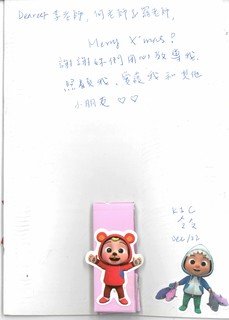 Dearest 李老師, 何老師 & 羅老師,
Merry X'mas!
謝謝妳們用心教導我,
照顧我、愛護我和其他
小朋友 ♡♡
K1C
Dec/22